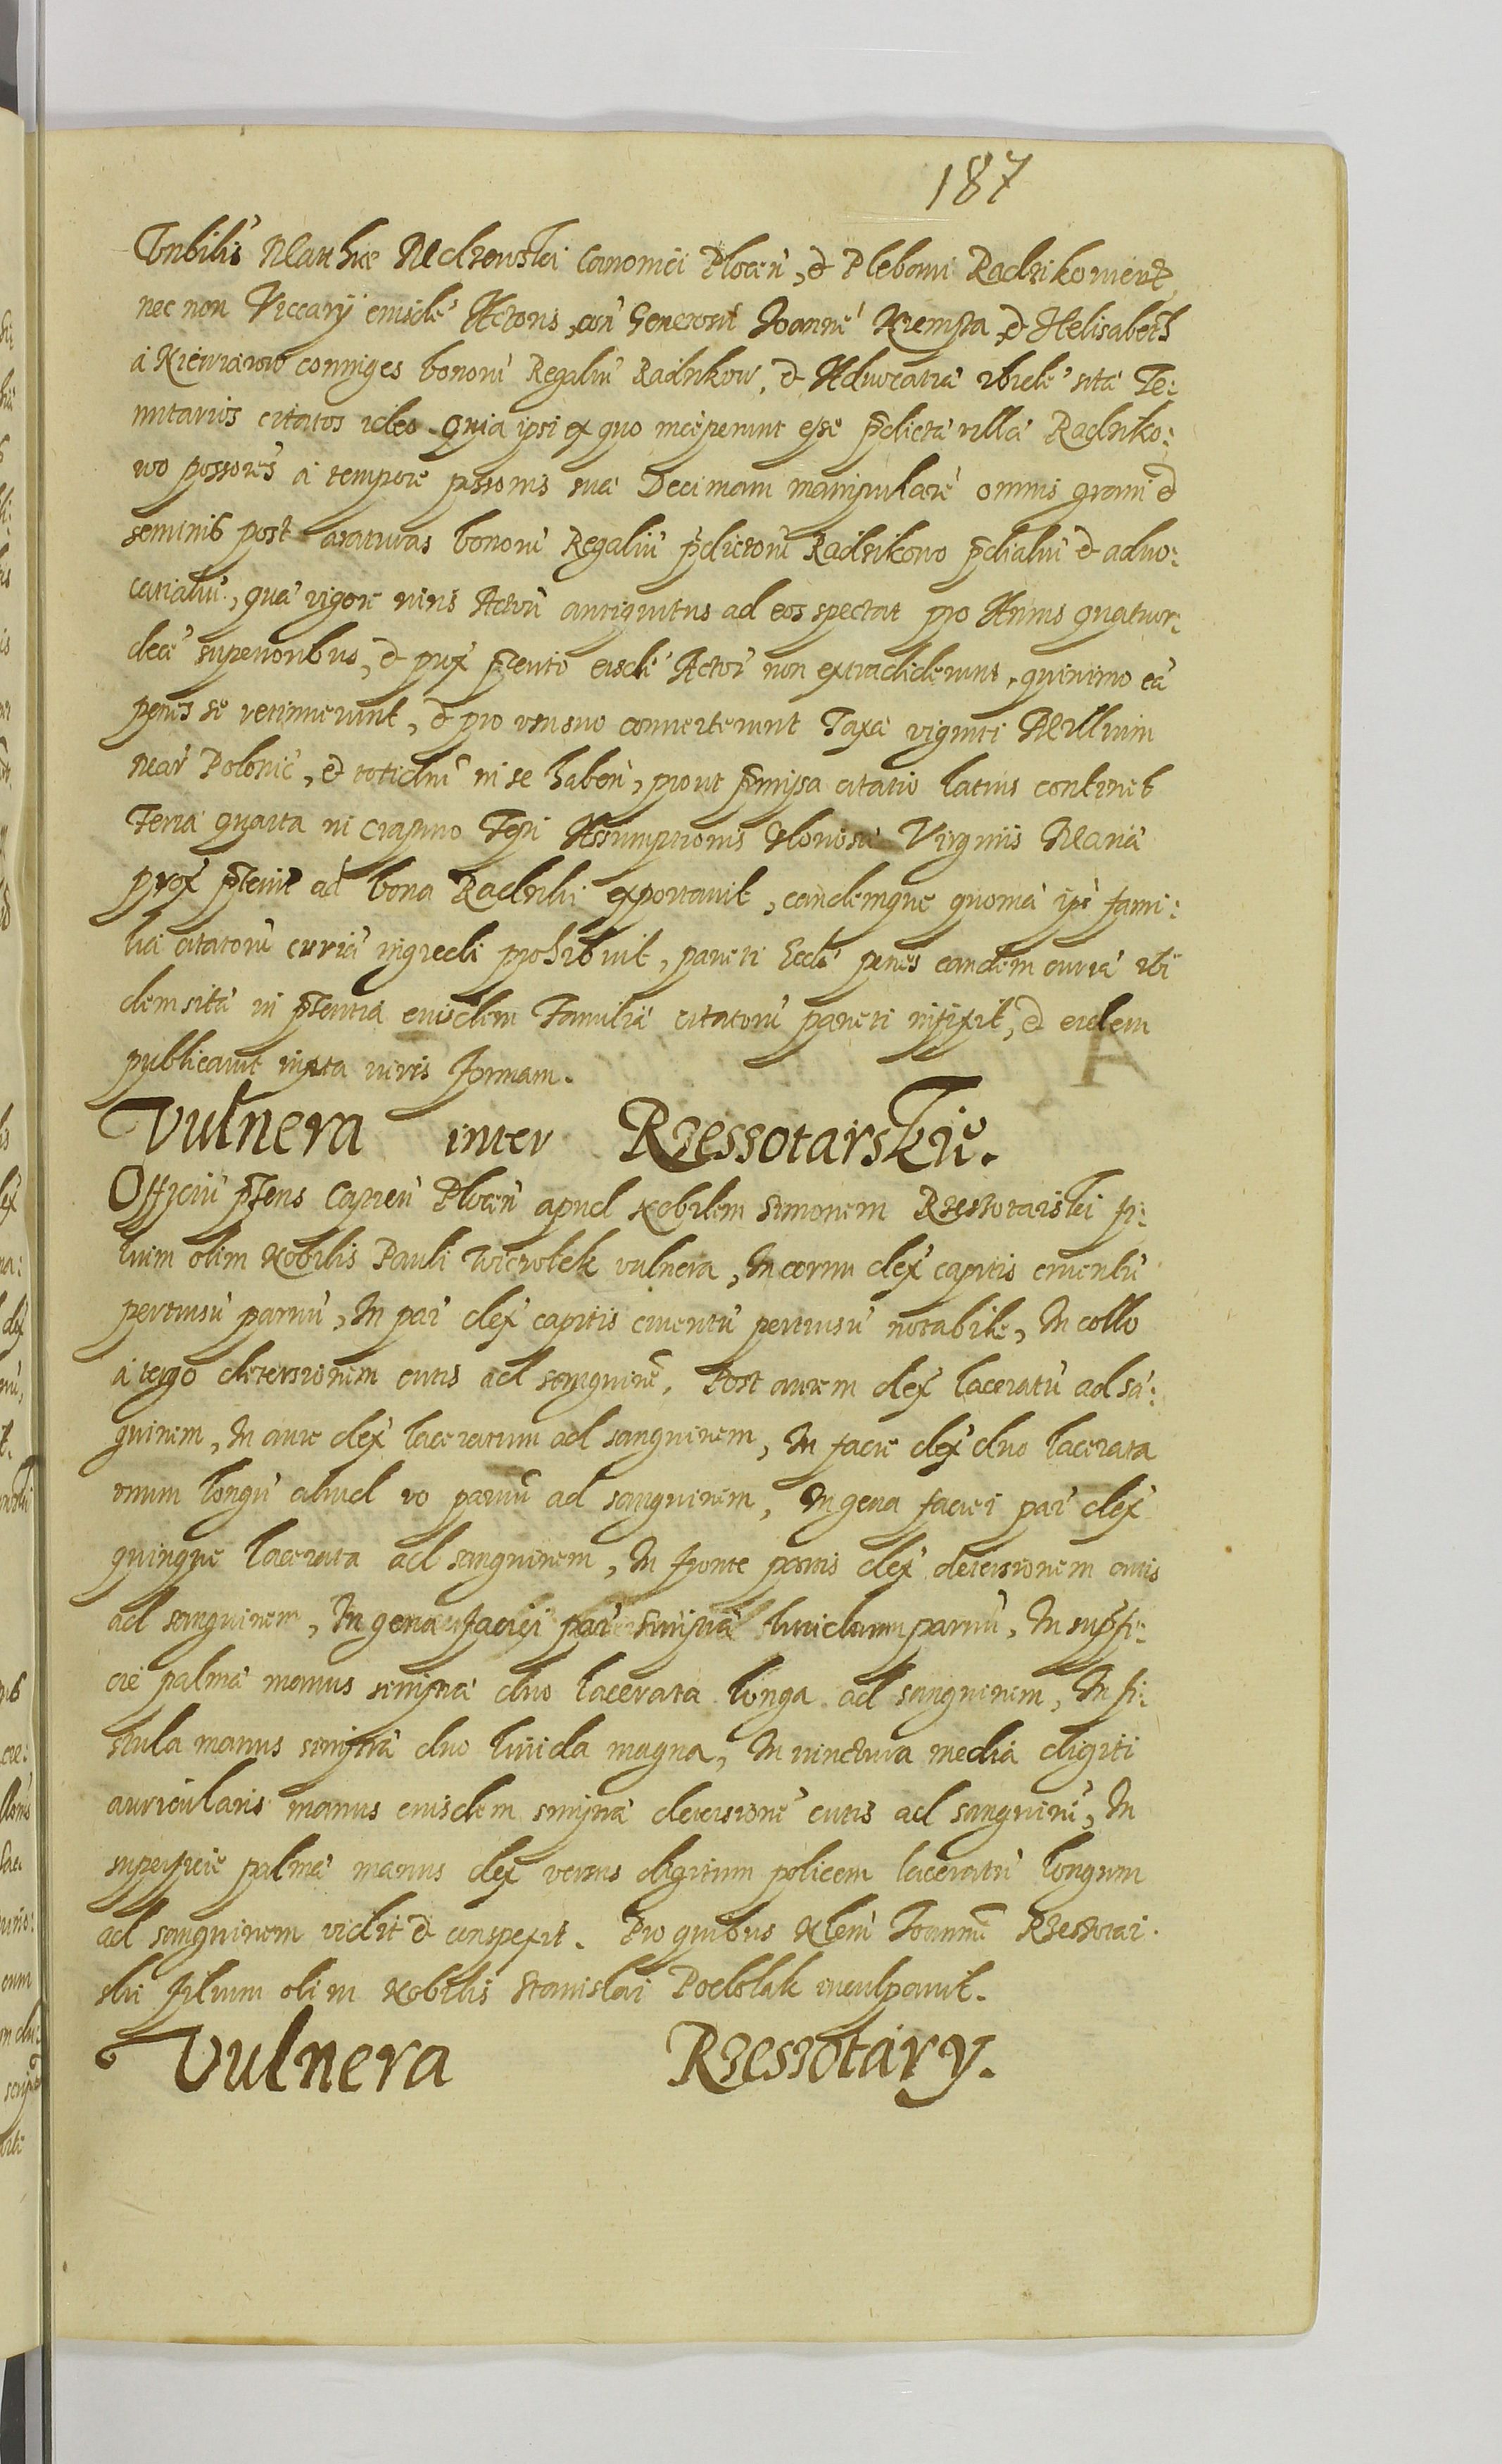 187
Vnbilis Mathiæ Mdzewski Canonici Plocen, & Plebani Radzikoviens
nec non Viccarÿ eiusdē Actoris, con Generosū Joannē Krempa, & Helisabeth
à coniuges bonorū Regaliū Radzikow, & Aduocatiæ ibidē sitæ Te:
nutarios citatos ideo Quia ipsi ex quo inceperunt esse p̄dictæ villæ Radziko:
wo possores à tempore possonis suæ Decimam manipularē omnis grani &
seminis post araturas bonorū Regaliū p̄dictorū Radzikowo p̄dialiū & aduo:
catialiū, quæ vigore iuris Actorū antiquitus ad eos spectat pro Annis quatuor:
decē superioribus, & prox p̄terito eisdē Actor non extradiderunt, quinimo eā
penes se retinuerunt, & pro vsu suo conuerterunt Taxæ viginti Mllium
mar Polonic, & totidem in se haben, prout p̄missa citatio latius continet
Feria quarta in crastino Festi Assumptionis Gloriosæ Virginis Mariæ
prox p̄terit ad bona Radzik exportauit, eandemque quoniā ipē fami:
lia citatorū curiā ingredi prohibuit, parieti Eccliæ penes eandem curiā ibi
dem sitæ in p̄sentia eiusdem Familiæ citatorū parieti infixit, & eidem
publicauit iuxta iuris formam.
Vulnera inter Rzessotarskie.
Officiū p̄sens Capten Plocen apud Nobilem Simonem Rzessotarski fi:
lium olim Nobilis Pauli Wierobek vulnera, In cornu dex capitis cruentū
pertusū paruū, In par dex capitis cruentū pertusū notabile, In collo
à tergo detersionem cutis ad sanguinē, Post aurem dex laceratū ad sā:
guinem, In aure dex laceratum ad sanguinem, In facie dex duo lacerata
vnum longū aliud vo paruū ad sanguinem, In gena faciei par dex
quinque lacerata ad sanguinem, In fronte partis dex detersionem cutis
ad sanguinem, In gena faciei par sinistræ liuidum paruū, In supfi:
cie palmæ manus sinistræ duo lacerata longa ad sanguinem, In fi:
stula manus sinistræ duo liuida magna, In iunctura media digiti
auricularis manus eiusdem sinistræ detersionē cutis ad sanguinē, In
superficie palmæ manus dex versus digitum policem laceratū longum
ad sanguinem vidit & conspexit. Pro quibus Nlem Joannē Rzessotar
ski filium olim Nobilis Stanislai Podolak inculpauit.
Vulnera Rzessotary.